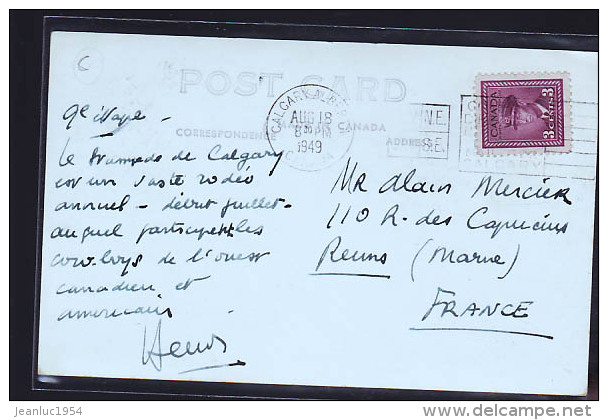 C
POST CARD
CALGARY ALBERTA
AUG 18
8 PM
1949
CANADA
3 CENTS 3
N.E.
S.E.
CORRESPONDENCE
CANADA
ADDRESS
9e étape -
Le Stampede de Calgary
est un vaste rodéo
annuel - début juillet -
auquel participent les
cow-boys de l'ouest
canadien et
américain
Mr Alain Mercier
110 R. des Capucins
Reims (Marne)
FRANCE
© jeanluc1954
www.delcampe.net